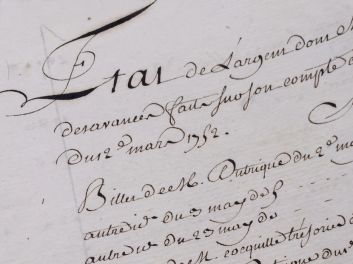 Etat de L'argent dont M
des avances faite sur son compte
Du 2e mars 1752.
Billet de M. Dutrique du 2e ma
autre id du 3 may de
autre id du 23 may de
de M. cocquille trésorie